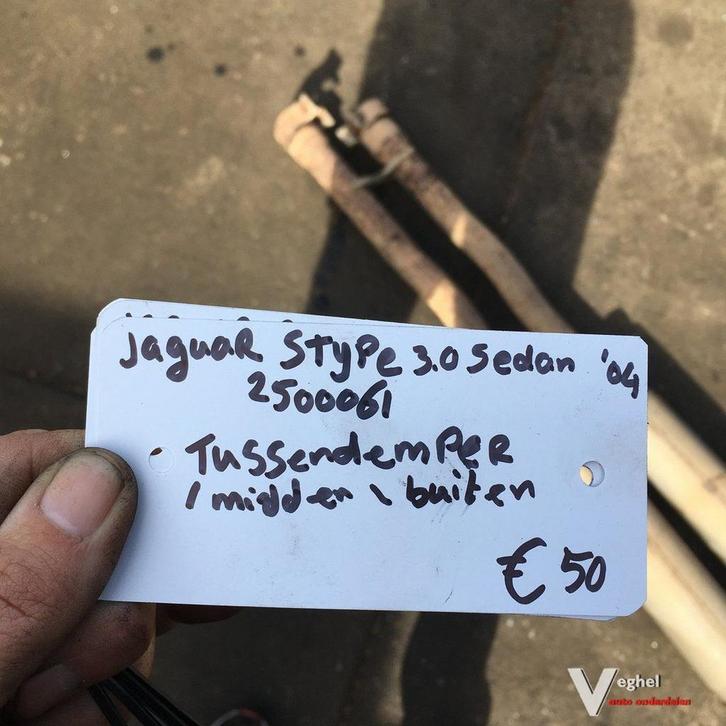 Jaguar Stype 3.0 Sedan '04
2500061
Tussendemper
/ midden \ buiten
€ 50
Veghel
auto onderdelen